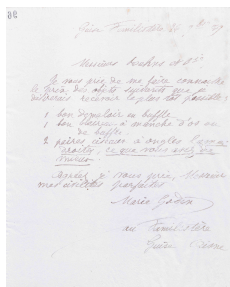 98
Guise Familistère
Messieurs
Je vous prie de me faire connaître
le prix des objets suivants que je
désirerais recevoir le plus tôt possible:
1 bon démêloir en buffle
1 bon
de buffle.
2 paires ciseaux à ongles
droits, ce que vous avez de
mieux.
Agréez, je vous prie, Messieurs
mes civilités parfaites
Marie Godin
au Familistère
Guise Aisne